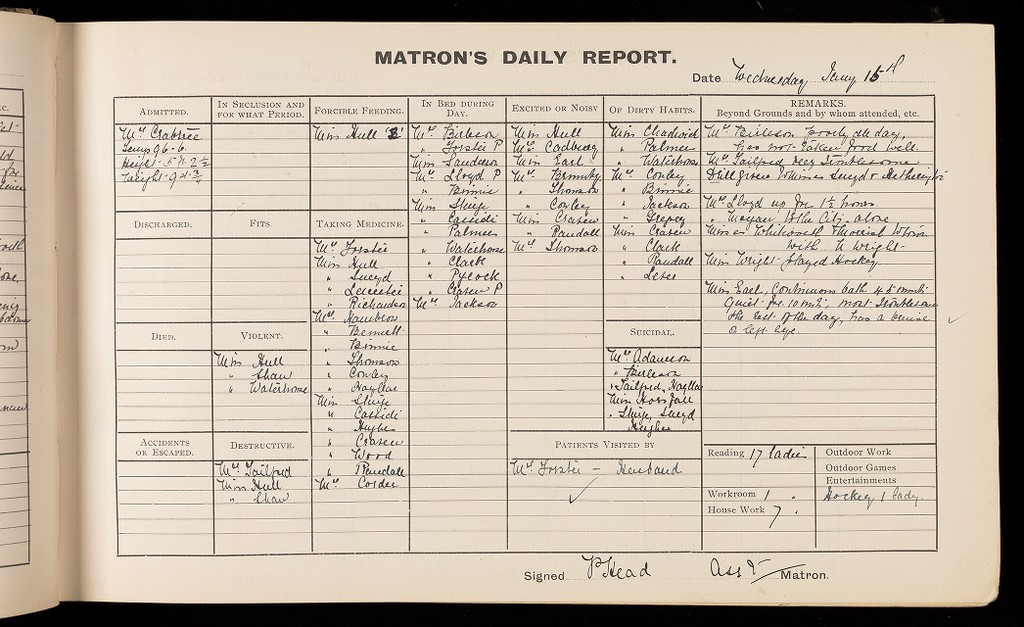 MATRON'S DAILY REPORT.
Date Wednesday Jany 15th
ADMITTED.
Mrs Crabtree
Temp 96.6.
Height - 5 ft 2 1/2
Weight - 9 st
DISCHARGED.
DIED.
ACCIDENTS
OR ESCAPED.
IN SECLUSION AND
FOR WHAT PERIOD.
FITS.
VIOLENT.
Miss Hull
" Shaw
" Waterhouse
DESTRUCTIVE.
Mrs Tailford
Miss Hull
" Shaw
FORCIBLE FEEDING.
Miss Hull
TAKING MEDICINE.
Mrs Forster
Miss Hull
" Sneyd
" Leicester
" Richardson
Mrs
" Bennett
" Binnie
" Thomson
" Conley
" Hoyllar
Miss
" Cassidi
" Hughes
" Crasen
" Wood
" Randall
Mrs Corder
IN BED DURING
DAY.
Mrs Birleson
" Forster P
Miss Sanderson
Mrs Lloyd P
" Binnie
Miss
" Cassidi
" Palmer
" Waterhouse
" Clark
" Pycock
" Crasen P
Mrs Jackson
EXCITED OR NOISY
Miss Hull
Mrs Cadbury
Miss Earl
Mrs
" Thomson
" Conley
Miss Crasen
" Randall
Mrs Thomson
OF DIRTY HABITS.
Miss Chadwick
" Palmer
" Waterhouse
Mrs Conley
" Binnie
" Jackson
"
Miss Crasen
" Clark
" Randall
"
SUICIDAL.
Mrs Adamson
" Birleson
" Tailford, Hoyllar
Miss Horsfall
" Sneyd
Hughes
PATIENTS VISITED BY
Mrs Forster - Husband
REMARKS.
Beyond Grounds and by whom attended, etc.
Mrs Birleson Poorly all day,
has not taken food well.
Mrs Tailford very troublesome
Drill given to Misses Sneyd & Hetherington
Mrs Lloyd up for 1 1/2 hours.
" Moyan to the City - alone
Misses Whitworth & to town
with N Wright.
Miss Wright played Hockey.
Miss Earl, Continuous bath 45 mnts
Quiet for 10 mts, most troublesome
the rest of the day, has a bruise
on left eye.
Reading 17 ladies
Workroom 1 "
House Work 7 "
Outdoor Work
Outdoor Games
Entertainments
Hockey 1 lady.
Signed P Head Asst Matron.